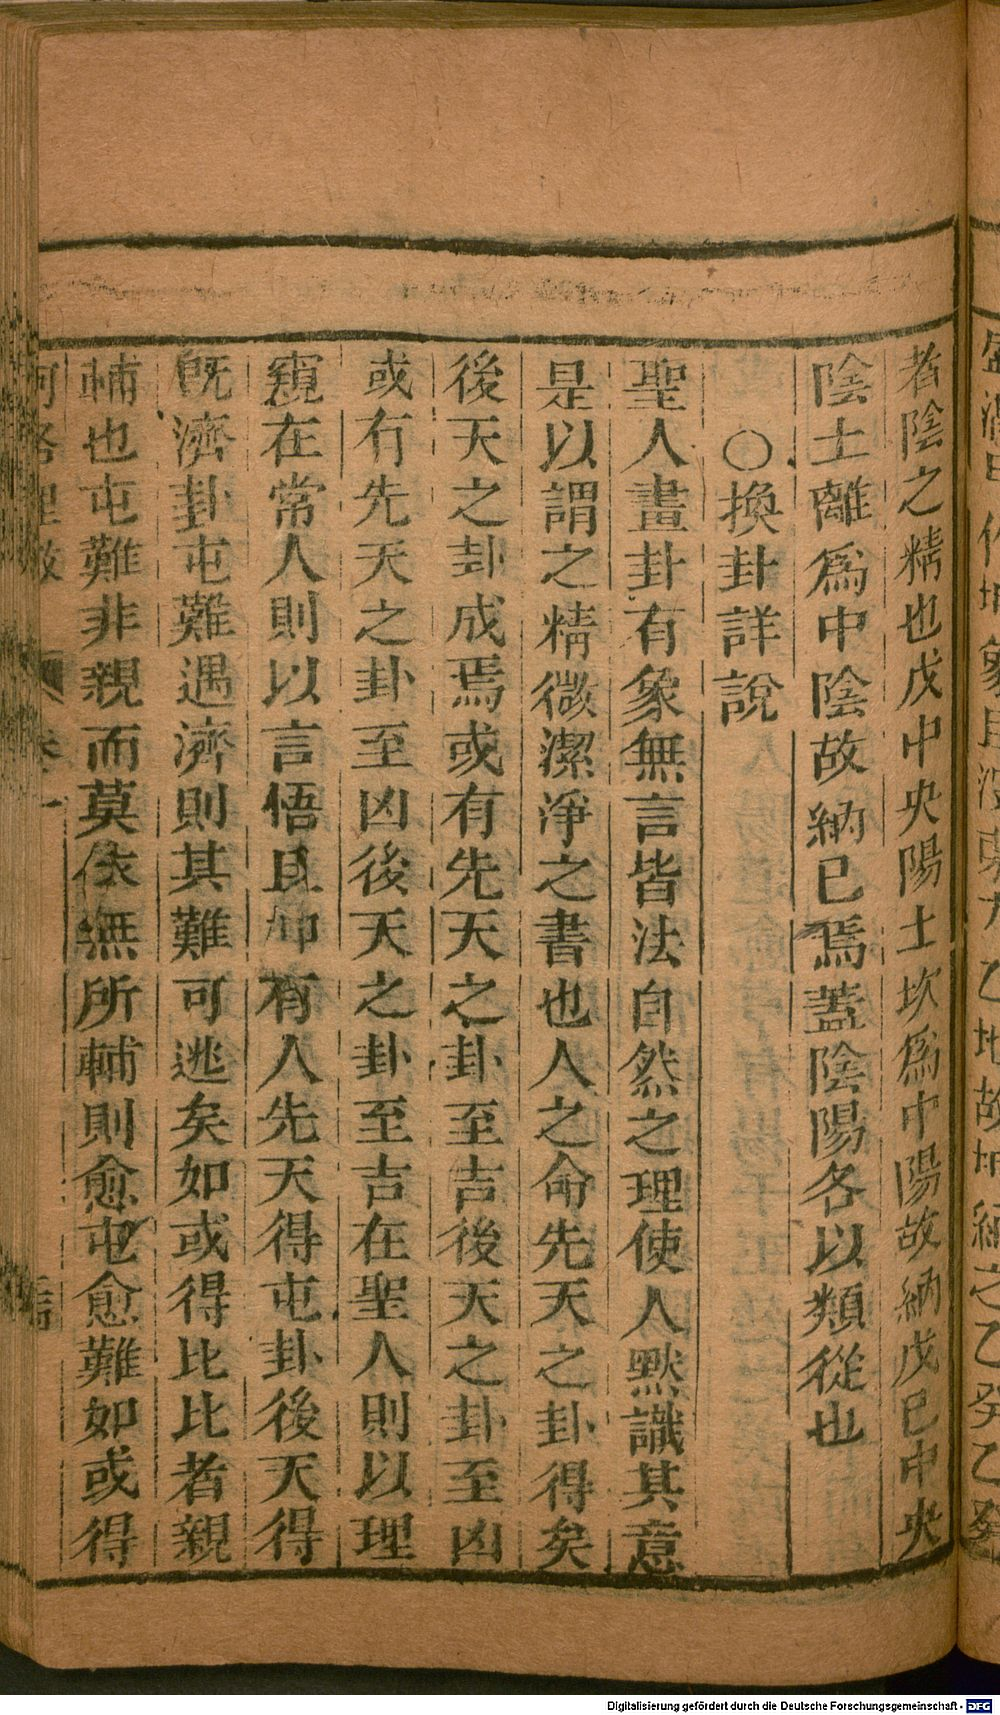 者陰之精也戊中央陽土坎爲中陽故納戊巳中央
陰土離爲中陰故納巳焉蓋陰陽各以類從也
○換卦詳說
聖人畫卦有象無言皆法自然之理使人默識其意
是以謂之精微潔淨之書也人之命先天之卦得矣
後天之卦成焉或有先天之卦至吉後天之卦至凶
或有先天之卦至凶後天之卦至吉在聖人則以理
窺在常人則以言悟且如有人先天得屯卦後天得
旣濟卦屯難遇濟則其難可逃矣如或得比比者親
輔也屯難非親而莫依無所輔則愈屯愈難如或得
河洛理數 卷一
Digitalisierung gefördert durch die Deutsche Forschungsgemeinschaft - DFG